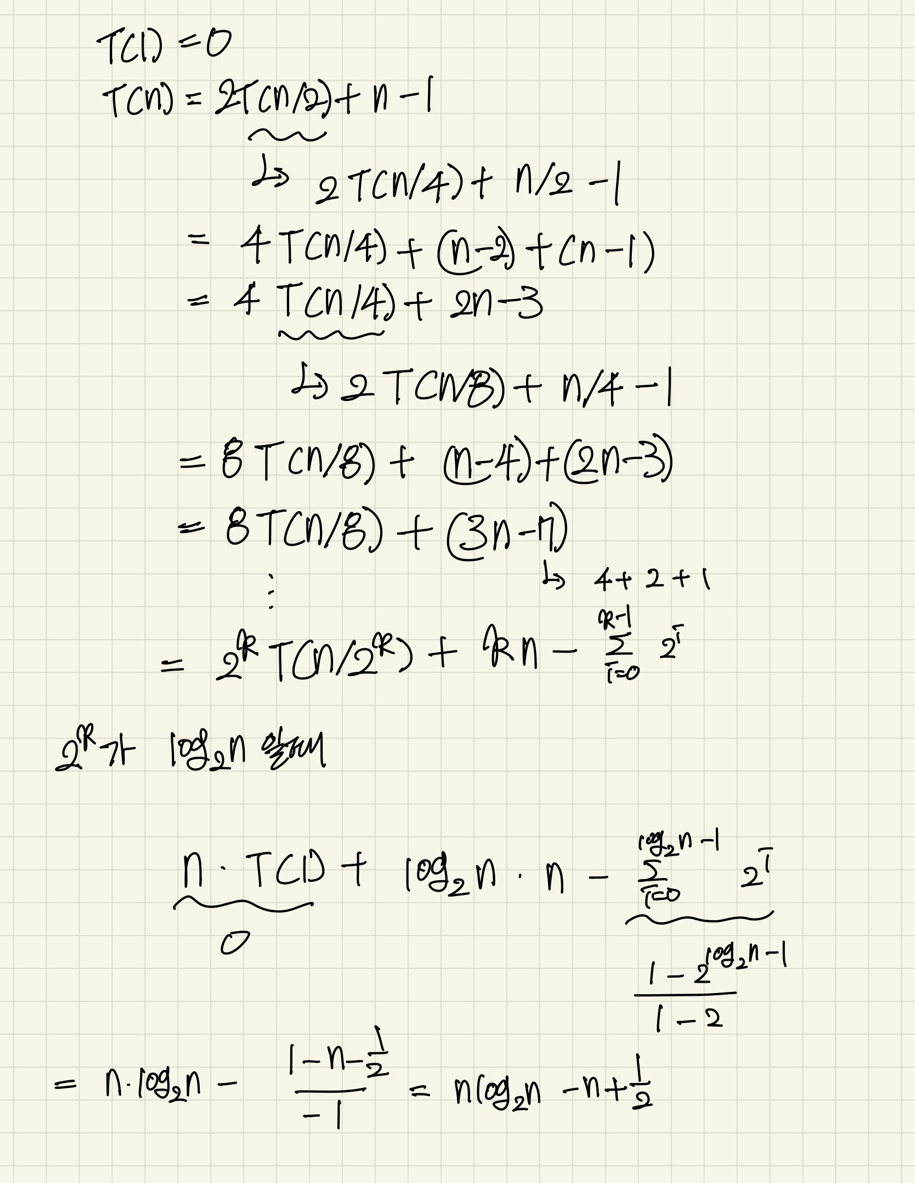 T(1) = 0
T(n) = 2T(n/2) + n - 1
↳ 2T(n/4) + n/2 - 1
= 4T(n/4) + (n-2) + (n-1)
= 4T(n/4) + 2n - 3
↳ 2T(n/8) + n/4 - 1
= 8T(n/8) + (n-4) + (2n-3)
= 8T(n/8) + (3n-7)
↳ 4 + 2 + 1
⋮
= 2^k T(n/2^k) + kn - Σ_{i=0}^{k-1} 2^i
2^k가 log₂n 일때
n · T(1) + log₂n · n - Σ_{i=0}^{log₂n-1} 2^i
0
(1 - 2^{log₂n-1}) / (1 - 2)
= n·log₂n - (1-n-1/2) / (-1) = nlog₂n - n + 1/2